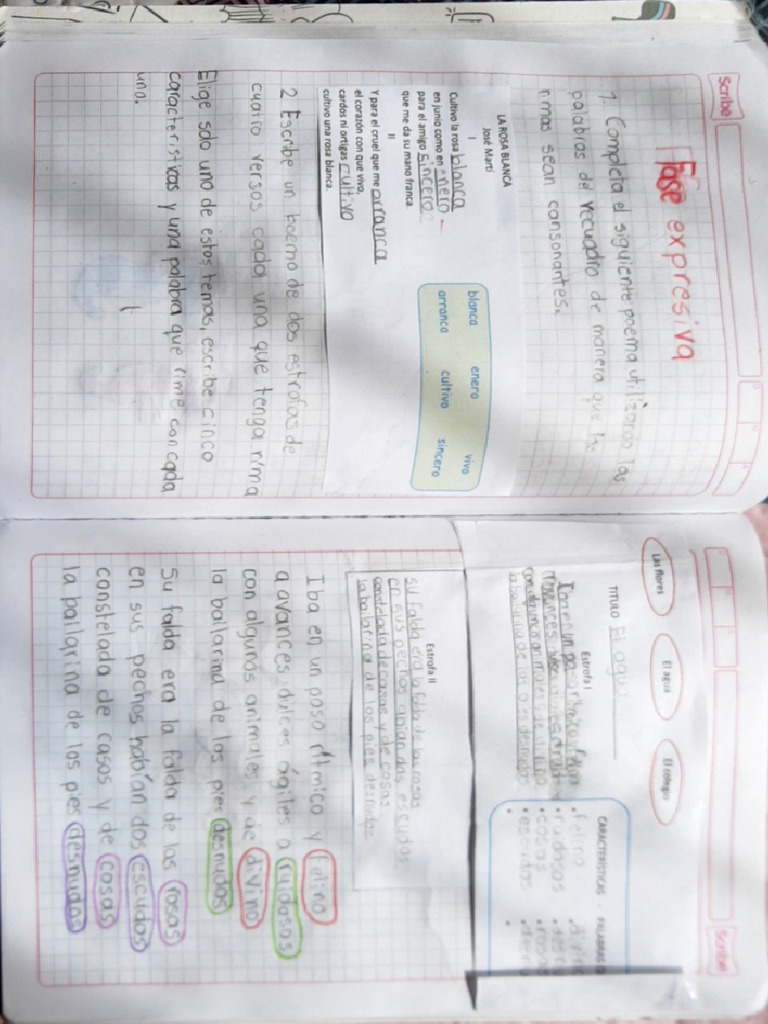 Scribe
Fase expresiva
1. Completa el siguiente poema utilizando las
palabras del recuadro de manera que las
rimas sean consonantes.
LA ROSA BLANCA
José Martí
I
Cultivo la rosa blanca
en junio como en enero
para el amigo sincero
que me da su mano franca.
II
Y para el cruel que me arranca
el corazón con que vivo,
cardos ni ortigas cultivo
cultivo una rosa blanca.
blanca enero vivo
arranca cultivo sincero
2 Escribe un poema de dos estrofas de
cuatro versos cada una que tenga rima
Elige solo uno de estos temas, escribe cinco
características y una palabra que rime con cada
una.
Scribe
Las flores El agua El colegio
TITULO El agua
Estrofa I
la bailarina de los pies desnudos
CARACTERÍSTICAS
felino
ruidosas
cosas
escudos
Estrofa II
su falda era la falda de las rosas
en sus pechos habían dos escudos
constelada de casos y de cosas
la bailarina de los pies desnudos
Iba en un paso rítmico y felino
a avances dulces ágiles a ruidosas
con algunas animales y de divino
la bailarina de los pies desnudos
Su falda era la falda de las rosas
en sus peches habían dos escudos
constelada de casos y de cosas
la bailarina de los pies desnudos